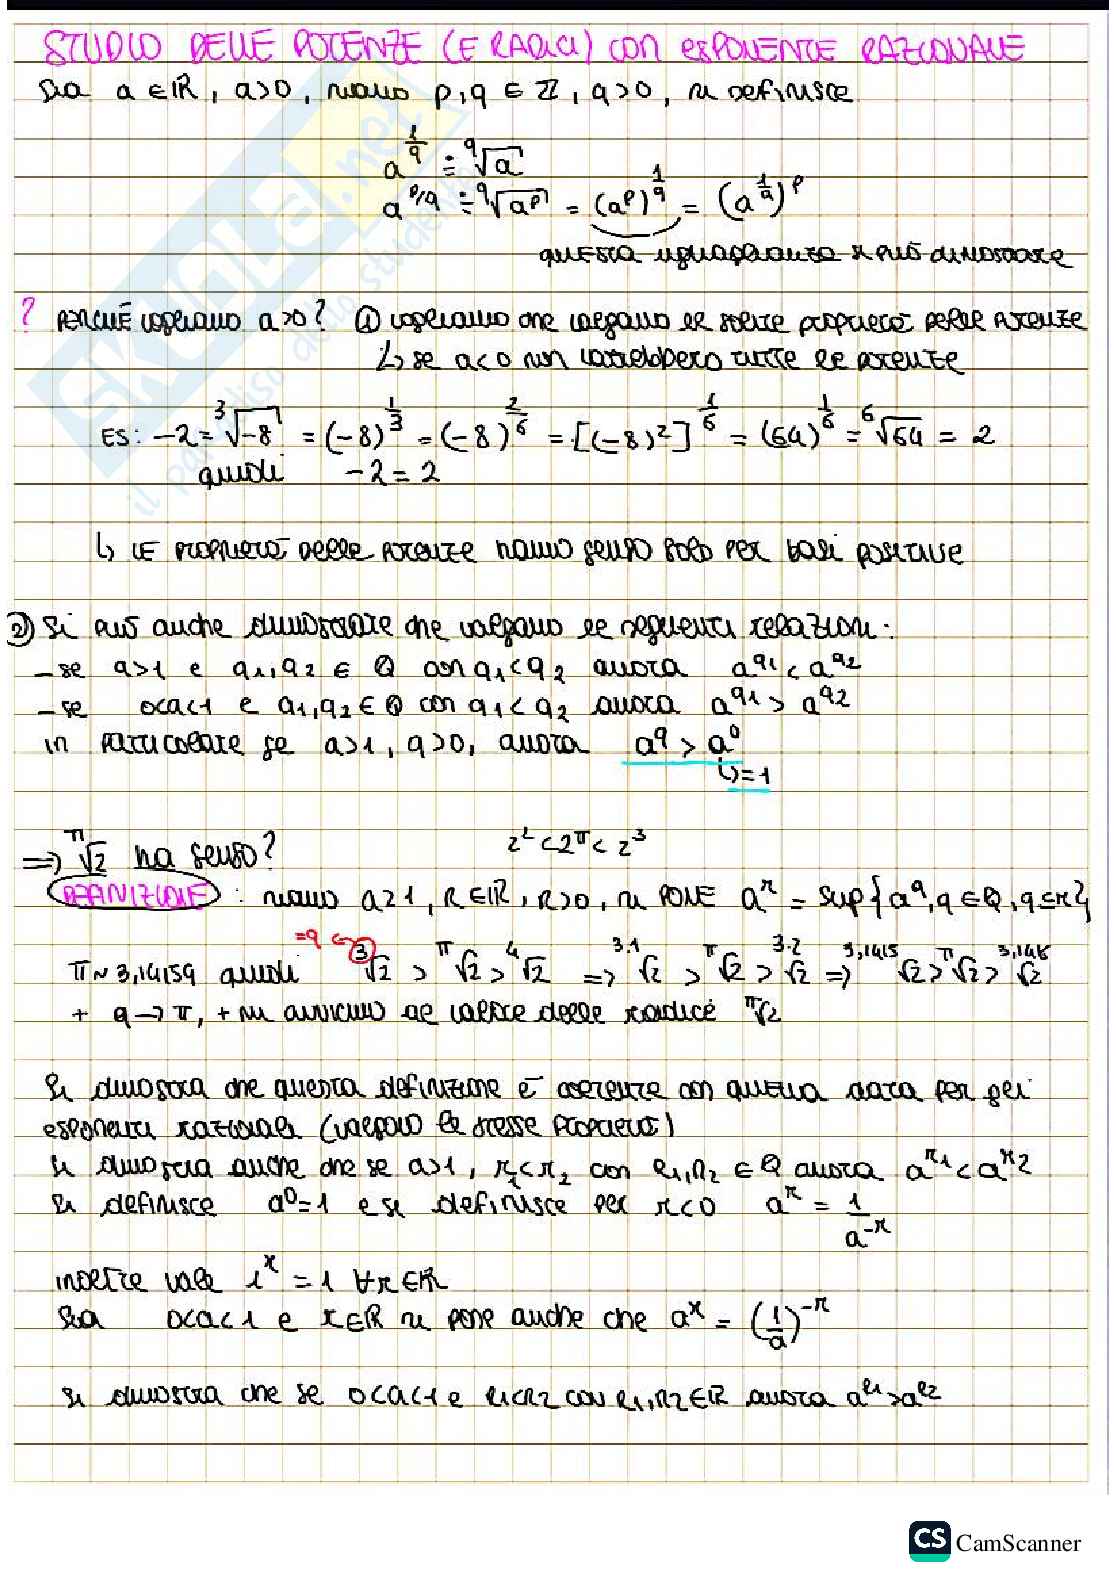 STUDIO DELLE POTENZE (E RADICI) CON ESPONENTE RAZIONALE
Sia a ∈ ℝ, a>0, siano p,q ∈ ℤ, q>0, si definisce
a^{1/q} := ^q√a
a^{p/q} := ^q√a^p = (a^p)^{1/q} = (a^{1/q})^p
questa uguaglianza si può dimostrare
? PERCHÉ vogliamo a>0? ① vogliamo che valgano le solite proprietà delle potenze
↳ se a<0 non varrebbero tutte le potenze
ES: -2 = ³√-8 = (-8)^{1/3} = (-8)^{2/6} = [(-8)²]^{1/6} = (64)^{1/6} = ⁶√64 = 2
quindi -2 = 2
↳ LE proprietà delle potenze hanno senso solo per basi positive
② Si può anche dimostrare che valgano le seguenti relazioni:
- se a>1 e q₁,q₂ ∈ ℚ con q₁<q₂ allora a^{q₁} < a^{q₂}
- se 0<a<1 e q₁,q₂ ∈ ℚ con q₁<q₂ allora a^{q₁} > a^{q₂}
in particolare se a>1, q>0, allora a^q > a^0
↳=1
⇒ ^π√2 ha senso? 2² < 2^π < 2³
DEFINIZIONE : siano a≥1, R∈ℝ, R>0, si PONE a^r = sup{a^q, q∈ℚ, q≤r}
=q ←
π ~ 3,14159 quindi ³√2 > ^π√2 > ⁴√2 ⇒ ^{3.1}√2 > ^π√2 > ^{3.2}√2 ⇒ ^{3,1415}√2 > ^π√2 > ^{3,1416}√2
+ q → π, + mi avvicino al valore della radice ^π√2
Si dimostra che questa definizione è coerente con quella data per gli
esponenti razionali (valgono le stesse proprietà)
Si dimostra anche che se a>1, r₁<r₂ con R₁,R₂ ∈ ℚ allora a^{r₁} < a^{r₂}
Si definisce a^0=1 e si definisce per r<0 a^r = 1/a^{-r}
inoltre vale 1^r = 1 ∀r∈ℝ
Sia 0<a<1 e r∈ℝ si pone anche che a^r = (1/a)^{-r}
Si dimostra che se 0<a<1 e R₁<R₂ con R₁,R₂∈ℝ allora a^{R₁} > a^{R₂}
SKUOLA.net
il paradiso dello studente
CS CamScanner